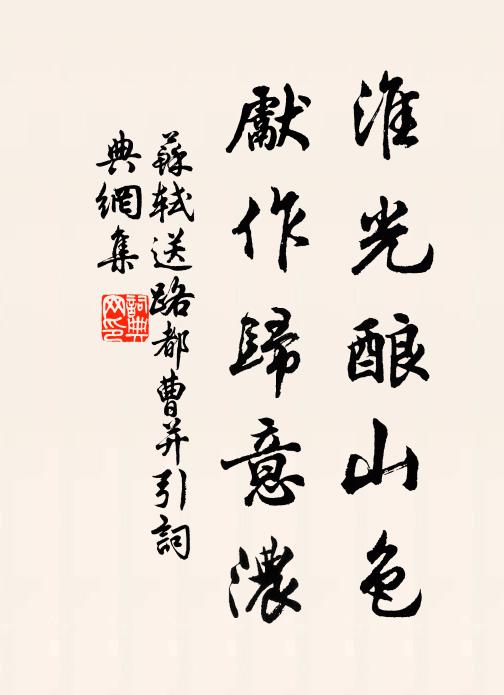 淮光酿山色
獻作歸意濃
蘇軾送路都曹并引詞
典網集
詞典
网印